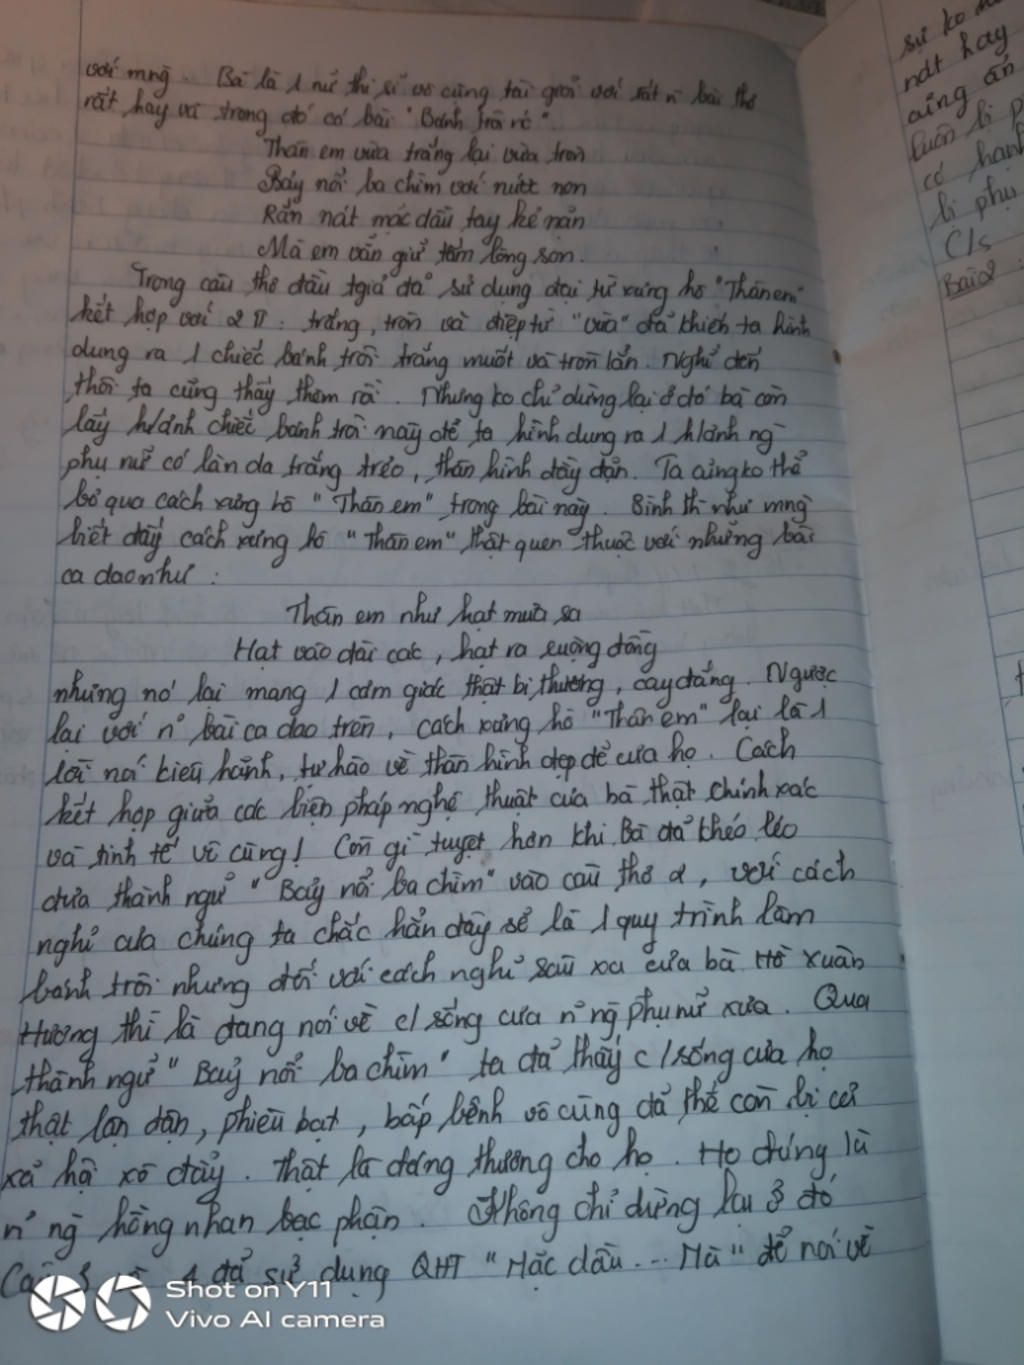 với mng. Bà là 1 nữ thi sĩ vô cùng tài giỏi với rất n` bài thơ
rất hay và trong đó có bài "Bánh trôi nc".
Thân em vừa trắng lại vừa tròn
Bảy nổi ba chìm với nước non
Rắn nát mặc dầu tay kẻ nặn
Mà em vẫn giữ tấm lòng son.
Trong câu thơ đầu tgiả đã sử dụng đại từ xưng hô "Thân em"
kết hợp với 2 TT: trắng, tròn và điệp từ "vừa" đã khiến ta hình
dung ra 1 chiếc bánh trôi trắng muốt và tròn lẳn. Nghĩ đến
thôi ta cũng thấy thèm rồi. Nhưng ko chỉ dừng lại ở đó bà còn
lấy h/ảnh chiếc bánh trôi này để ta hình dung ra 1 h/ảnh ng`
phụ nữ có làn da trắng trẻo, thân hình đầy đặn. Ta cũng ko thể
bỏ qua cách xưng hô "Thân em" trong bài này. Bình th` như mng`
biết đấy cách xưng hô "Thân em" thật quen thuộc với những bài
ca dao như:
Thân em như hạt mưa sa
Hạt vào đài các, hạt ra ruộng đồng
nhưng nó lại mang 1 cảm giác thật bi thương, cay đắng. Ngược
lại với n~ bài ca dao trên, cách xưng hô "Thân em" lại là 1
lời nói kiêu hãnh, tự hào về thân hình đẹp đẽ của họ. Cách
kết hợp giữa các biện pháp nghệ thuật của bà thật chính xác
và tinh tế vô cùng! Còn gì tuyệt hơn khi Bà đã khéo léo
đưa thành ngữ "Bảy nổi ba chìm" vào câu thơ 2, với cách
nghĩ của chúng ta chắc hẳn đây sẽ là 1 quy trình làm
bánh trôi nhưng đối với cách nghĩ sâu xa của bà Hồ Xuân
Hương thì là đang nói về c/sống của n~ ng` phụ nữ xưa. Qua
thành ngữ "Bảy nổi ba chìm" ta đã thấy c/sống của họ
thật lận đận, phiêu bạt, bấp bênh vô cùng đã thế còn bị cả
xã hội xô đẩy. Thật là đáng thương cho họ. Họ đúng là
n~ ng` hồng nhan bạc phận. Không chỉ dừng lại ở đó
4 đã sử dụng QHT "Mặc dầu... Mà" để nói về
sự ko
nát hay
cũng
luôn bị
có hạnh
bị phụ
C/s
Bài 2:
Shot on Y11
Vivo AI camera